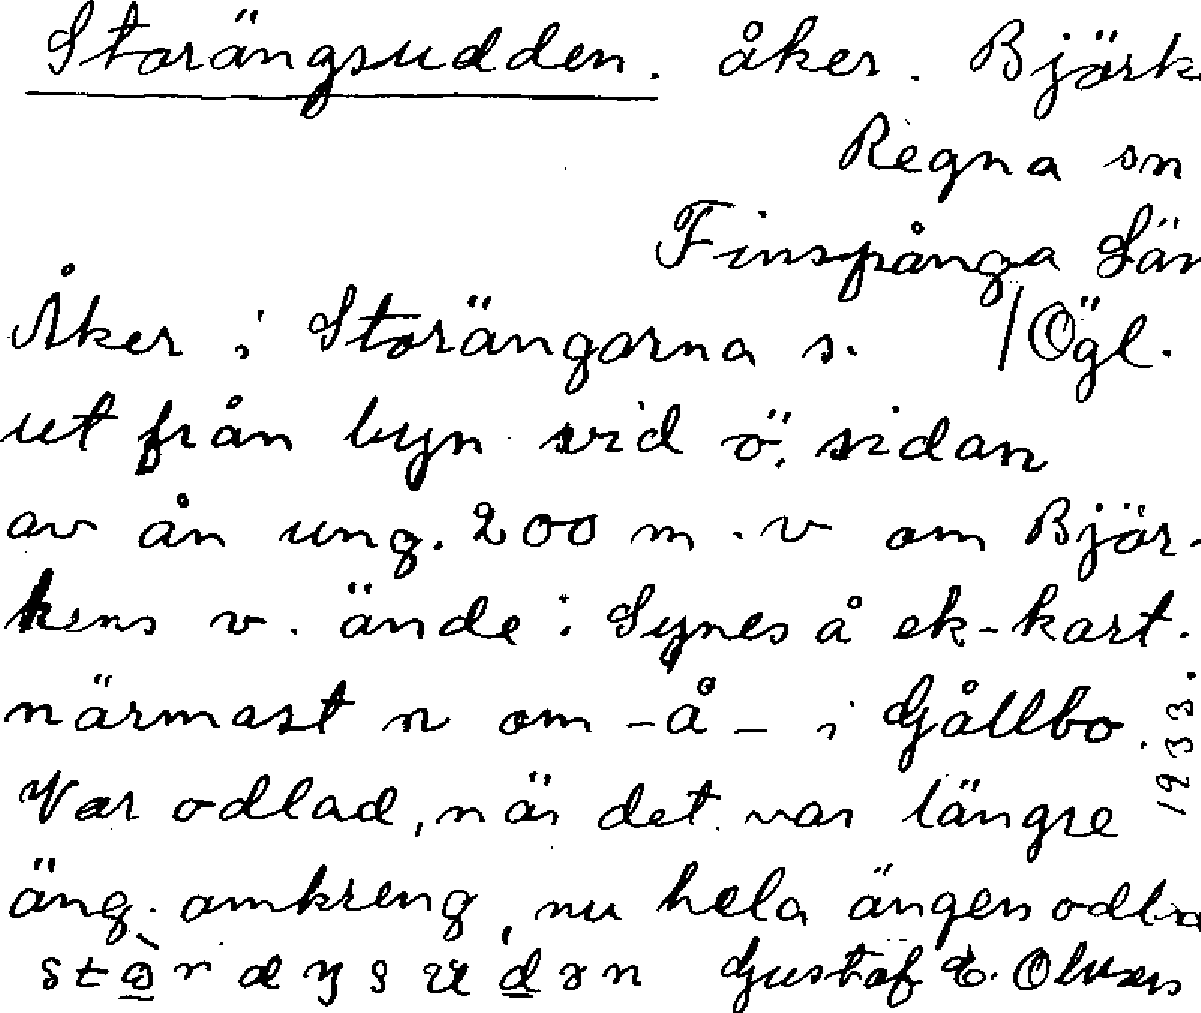 Storängsudden. åker. Björk
Regna sn
Finspånga Län
Åker i Storängarna s. /Ögl.
ut från byn vid ö. sidan
av ån ung. 200 m. v om Björ-
kens v. ände. Synes å ek-kart.
närmast n om -å- i Gållbo.
Var odlad, när det var längre
äng. omkreng, nu hela ängen odla
Gustaf E. Olsson
1933.